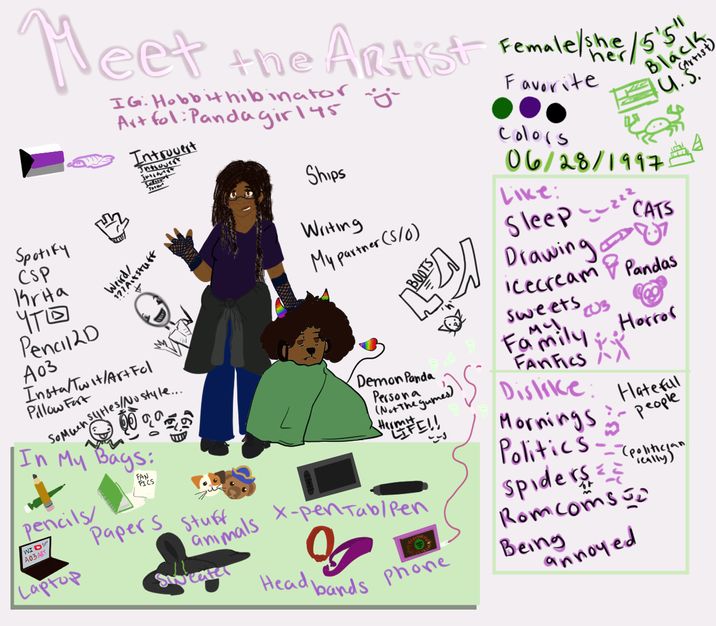 Meet the Artist
IG: Hobbithibinator
Artfol: Pandagirl45
Female/she/her/5'5"
Black
(Artist)
U.S.
Favorite
Colors
06/28/1997
Introvert
Introvert
Introvert
Ships
Writing
My partner (S/O)
Spotify
CSP
Krita
YT
Pencil2D
AO3
Insta/Twit/ArtFol
PillowFort
Weird/
!?!Artstuff
BOOTS
Demon Panda
Persona
(Not the gamed)
Hermit
LIFE!!
So much styles/No style...
Like:
Sleep zzz
CATS
Drawing
icecream
Pandas
sweets
My
Family
Horror
FanFics
Dislike:
Hatefull
people
Mornings
Politics
(politician
ically)
spiders
Romcoms
Being
annoyed
In My Bags:
FAN
FICS
pencils/
Papers
stuff
animals
X-pen Tab/Pen
Laptop
sweater
Head
bands
Phone